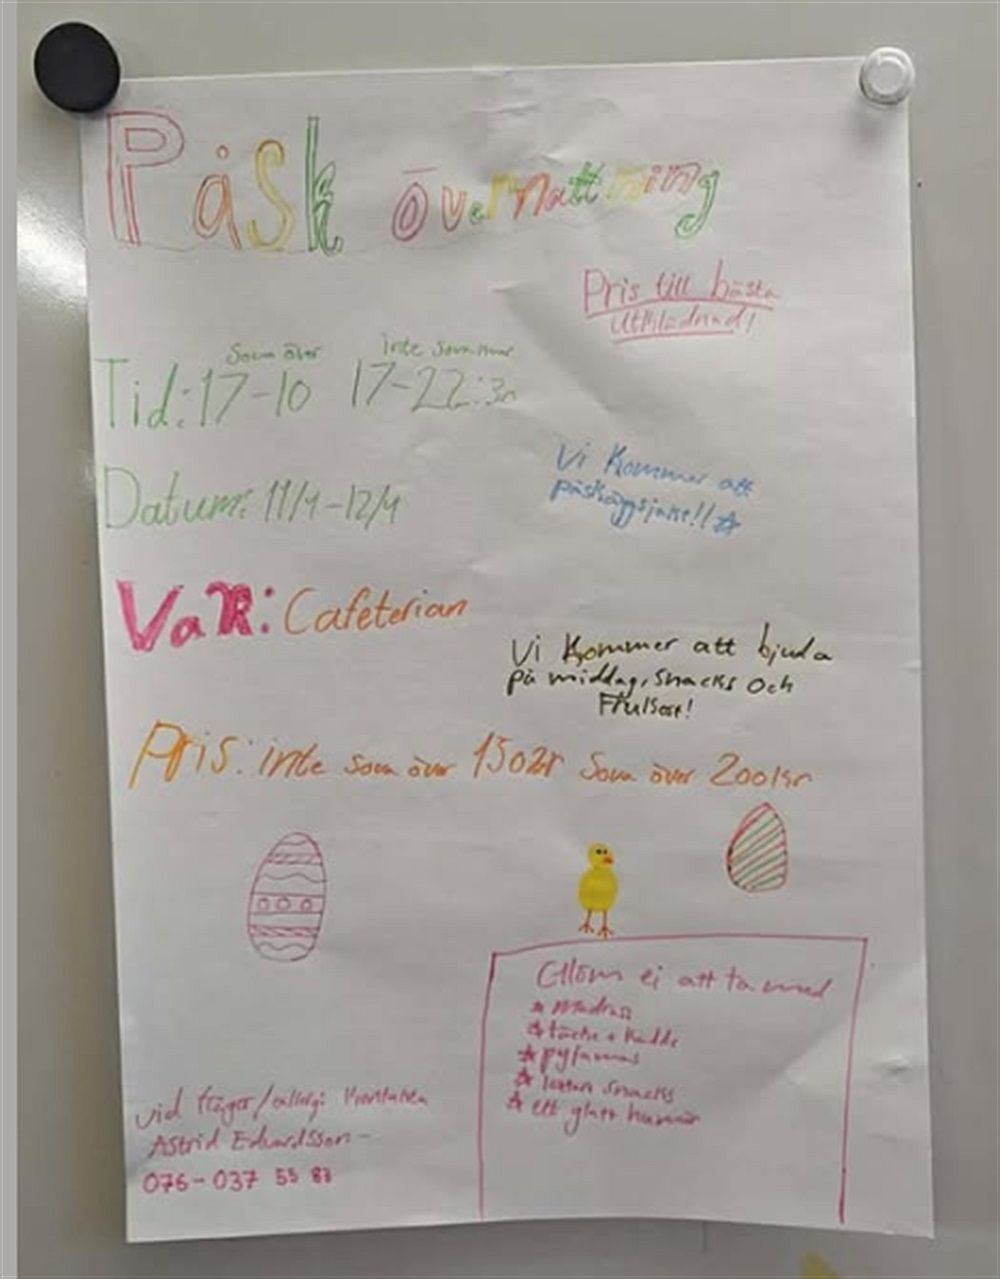 Påsk övernattning
Pris till bästa
utklädnad!
Sova över inte sova över
Tid: 17-10 17-22:30
Datum: 11/4-12/4
Vi kommer att
påskäggsjaka!!
VaR: Cafeterian
Vi kommer att bjuda
på middag, snacks och
Frukost!
Pris: inte sova över 150kr Sova över 200kr
Glöm ei att ta med
madrass
täcke + kudde
pyjamas
snacks
ett glatt humör
vid frågor/allergi kontakta
Astrid Edvardsson -
076-037 55 83